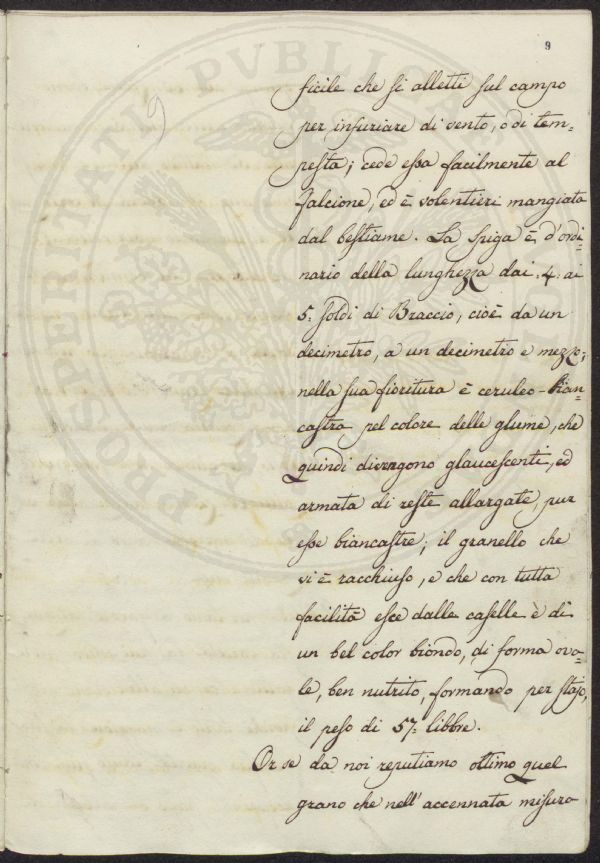 9
ficile che si alletti sul campo
per infuriare di vento, o di tem=
pesta; cede essa facilmente al
falcione, ed è volentieri mangiata
dal bestiame. La spiga è d'ordi=
nario della lunghezza dai .4. ai
5. soldi di Braccio, cioè da un
decimetro, a un decimetro e mezzo;
nella sua fioritura è ceruleo-bian=
castra pel colore delle glume, che
quindi divengono glaucescenti, ed
armata di reste allargate, pur
esse biancastre; il granello che
vi è racchiuso, e che con tutta
facilità esce dalle caselle è di
un bel color biondo, di forma ova=
le, ben nutrito, formando per stajo,
il peso di 57. libbre.
Or se da noi reputiamo ottimo quel
grano che nell'accennata misura
9
PVBLICA
POSTERITATI